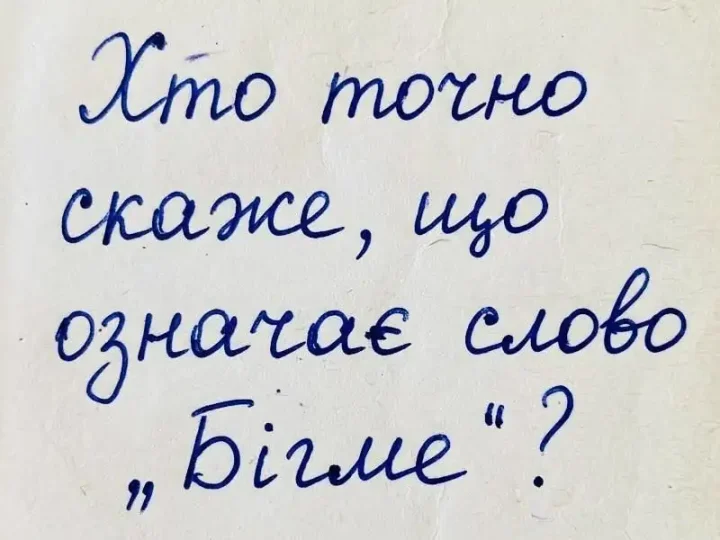 Хто точно
скаже, що
означає слово
„Бігме“?